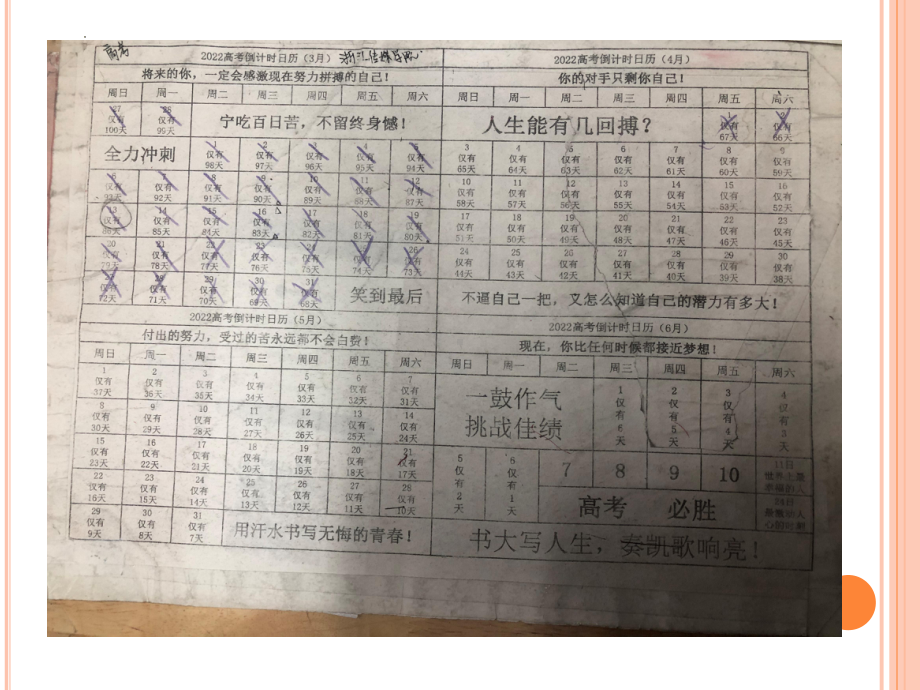 高考
2022高考倒计时日历（3月）
将来的你，一定会感激现在努力拼搏的自己！
周日 周一 周二 周三 周四 周五 周六
27 28
仅有 仅有
100天 99天
宁吃百日苦，不留终身憾！
全力冲刺
1 2 3 4 5
仅有 仅有 仅有 仅有 仅有
98天 97天 96天 95天 94天
6 7 8 9 10 11 12
仅有 仅有 仅有 仅有 仅有 仅有 仅有
93天 92天 91天 90天 89天 88天 87天
13 14 15 16 17 18 19
仅有 仅有 仅有 仅有 仅有 仅有 仅有
86天 85天 84天 83天 82天 81天 80天
20 21 22 23 24 25 26
仅有 仅有 仅有 仅有 仅有 仅有 仅有
79天 78天 77天 76天 75天 74天 73天
27 28 29 30 31
仅有 仅有 仅有 仅有 仅有
72天 71天 70天 69天 68天
笑到最后
2022高考倒计时日历（4月）
你的对手只剩你自己！
周日 周一 周二 周三 周四 周五 周六
人生能有几回搏？
1 2
仅有 仅有
67天 66天
3 4 5 6 7 8 9
仅有 仅有 仅有 仅有 仅有 仅有 仅有
65天 64天 63天 62天 61天 60天 59天
10 11 12 13 14 15 16
仅有 仅有 仅有 仅有 仅有 仅有 仅有
58天 57天 56天 55天 54天 53天 52天
17 18 19 20 21 22 23
仅有 仅有 仅有 仅有 仅有 仅有 仅有
51天 50天 49天 48天 47天 46天 45天
24 25 26 27 28 29 30
仅有 仅有 仅有 仅有 仅有 仅有 仅有
44天 43天 42天 41天 40天 39天 38天
不逼自己一把，又怎么知道自己的潜力有多大！
2022高考倒计时日历（5月）
付出的努力，受过的苦永远都不会白费！
周日 周一 周二 周三 周四 周五 周六
1 2 3 4 5 6 7
仅有 仅有 仅有 仅有 仅有 仅有 仅有
37天 36天 35天 34天 33天 32天 31天
8 9 10 11 12 13 14
仅有 仅有 仅有 仅有 仅有 仅有 仅有
30天 29天 28天 27天 26天 25天 24天
15 16 17 18 19 20 21
仅有 仅有 仅有 仅有 仅有 仅有 仅有
23天 22天 21天 20天 19天 18天 17天
22 23 24 25 26 27 28
仅有 仅有 仅有 仅有 仅有 仅有 仅有
16天 15天 14天 13天 12天 11天 10天
29 30 31
仅有 仅有 仅有
9天 8天 7天
用汗水书写无悔的青春！
2022高考倒计时日历（6月）
现在，你比任何时候都接近梦想！
周日 周一 周二 周三 周四 周五 周六
一鼓作气
挑战佳绩
1 2 3 4
仅 仅 仅 仅
有 有 有 有
6 5 4 3
天 天 天 天
5 6
仅 仅
有 有
2 1
天 天
7 8 9 10
11日
世界上最
幸福的人
高考 必胜
24日
最激动人
心的时刻
书大写人生，奏凯歌响亮！